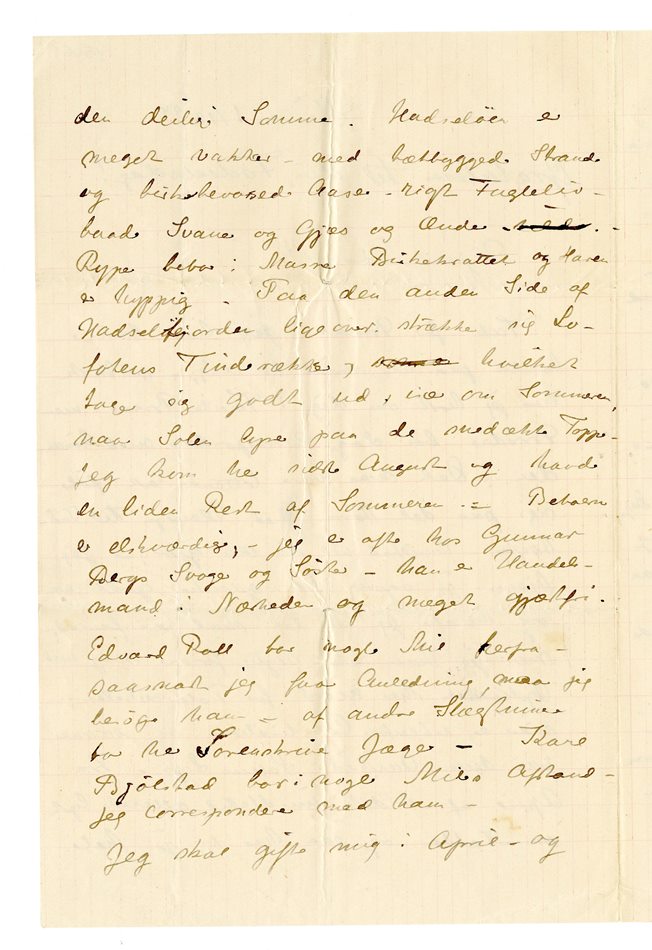 den deilig Somme. Hadseløen e
meget vakker – med tætbygged Strande
og birkebevoxed Aase – rigt Fugleliv –
baade Svane og Gjæs og Ænde –
Rype bebor i Masse Birkekrattet og Haren
e hyppig – Paa den anden Side af
Hadselfjorden lige over strække sig Lo-
fotens Tinderække, hvilket
tage sig godt ud, især om Sommeren,
naar Solen lyse paa de snedækte Toppe.
Jeg kom he sidst August og havde
en liden Rest af Sommeren. – Beboern
e elskværdig, – jeg e ofte hos Gunnar
Bergs Svoge og Søste – han e Handels-
mand i Nærheden og meget gjæstfri.
Edvard Roll bor nogle Mil herfra –
saasnart jeg faar Anledning, maa jeg
besøge ham – af andre Slægtninge
bo he Sorenskrive Jæge – Kare
Bjølstad bor i nogle Mils Afstand –
jeg correspondere med ham –
Jeg skal gifte mig i April – og